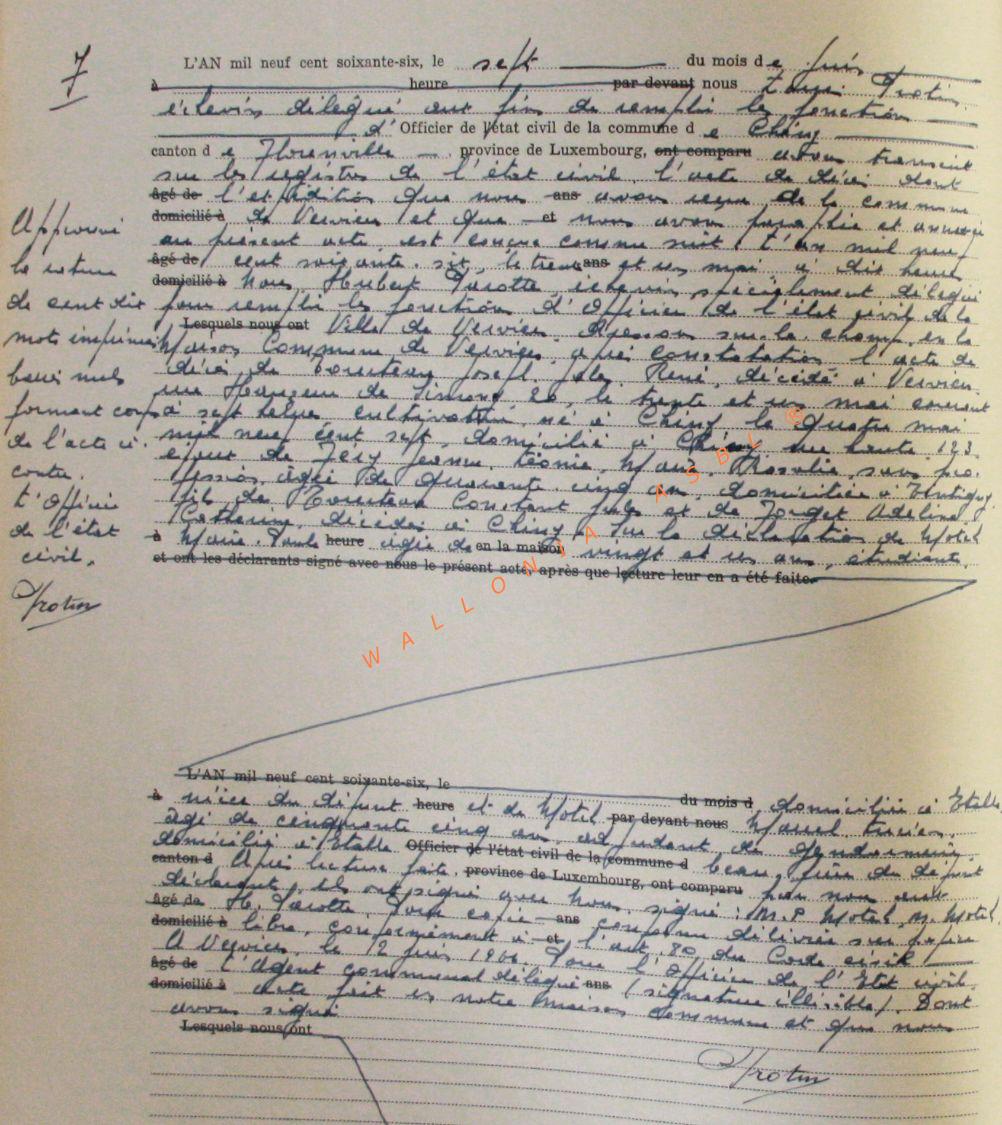 7
L'AN mil neuf cent soixante-six, le sept du mois de juin
à heure par devant nous
échevin délégué aux fins de remplir les fonctions
d'Officier de l'état civil de la commune de Chiny
canton de Florenville province de Luxembourg, ont comparu avons transcrit
sur les registres de l'état civil, l'acte de décès dont
âgé de l'expédition que nous ans avons reçue de la commune
domicilié à de Verviers et que et nous avons paraphée et annexée
au présent acte, est conçue comme suit L'an mil neuf
âgé de cent soixante-six, le trente ans et un mai à dix heures
domicilié à Nous, Hubert Parotte, échevin spécialement délégué
pour remplir les fonctions d'Officier de l'état civil de la
Lesquels nous ont Ville de Verviers. Dressons sur-le-champ, en la
Maison Communale de Verviers, après constatation l'acte de
décès de Joseph, Jules, René, décédé à Verviers
rue de Simoni 20, le trente et un mai courant
à sept heures cultivateur né à Chiny le quatre mai
mil neuf cent sept, domicilié à Chiny rue haute 123,
époux de Jeanne, Léonie, Marie, Rosalie, sans pro-
fession âgée de quarante cinq ans, domiciliée à Tintigny
fils de Constant Jules et de Adeline
Catherine, décédés à Chiny. Sur la déclaration de Motel
à Marie-Paule heure âgée de en la maison vingt et un ans, étudiante
et ont les déclarants signé avec nous le présent acte, après que lecture leur en a été faite.
Approuvé
la rature
de cent dix
mots imprimés
barrés nuls
formant corps
de l'acte ci-
contre.
L'Officier
de l'état
civil.
L'AN mil neuf cent soixante-six, le du mois d
à nièce du défunt heure et de Motel par devant nous domiciliée à Etalle
âgé de cinquante cinq ans adjudant de gendarmerie
domicilié à Etalle Officier de l'état civil de la commune d beau-frère du défunt
canton d Après lecture faite province de Luxembourg, ont comparu par nous aux
déclarants, ils ont signé avec Nous, signé : M.P. Motel, M. Motel,
âgé de H. Parotte, Pour copie ans conforme délivrée sur papier
domicilié à libre, conformément à et l'art. 80 du Code civil
A Verviers, le 12 juin 1966. Pour l'Officier de l'Etat civil
âgé de L'Agent communal délégué ans (signature illisible). Dont
domicilié à acte fait en notre maison communale et que nous
avons signé
Lesquels nous ont
WALLONIA ASBL ©